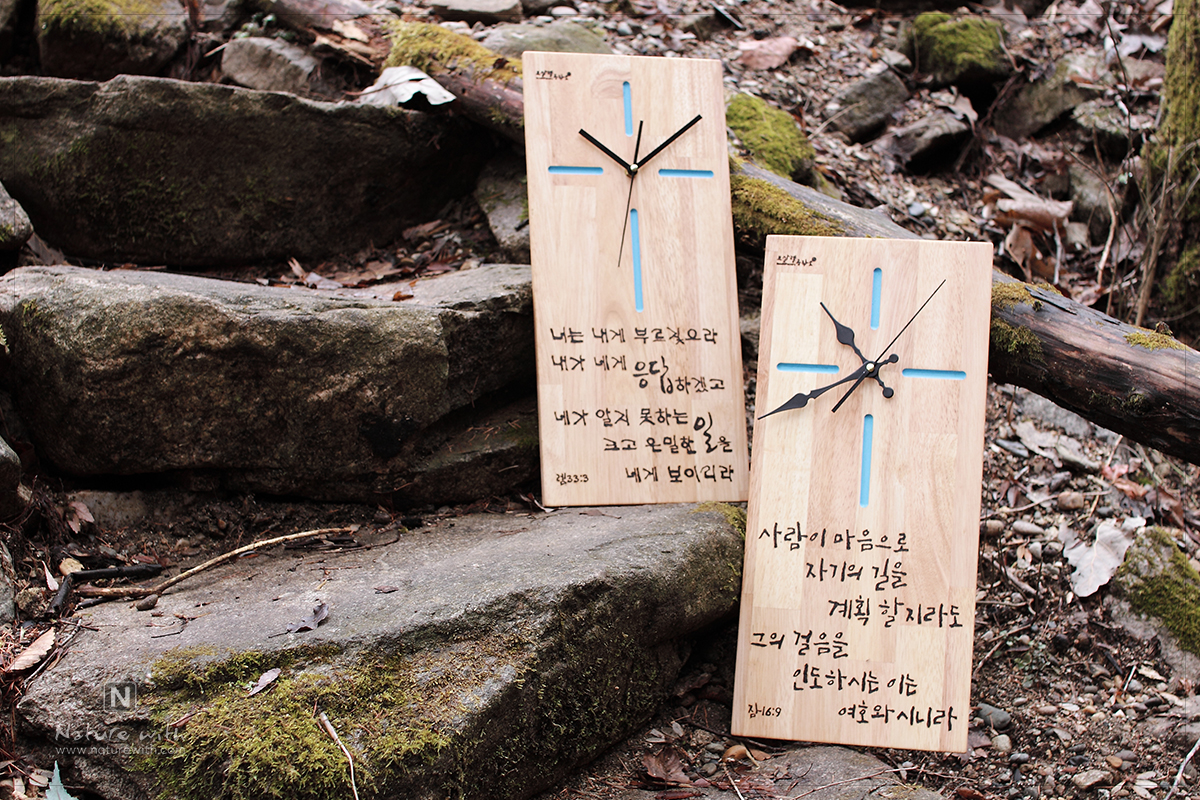 너는 내게 부르짖으라
내가 네게 응답하겠고
네가 알지 못하는
크고 은밀한 일을
네게 보이리라
렘33:3
사람이 마음으로
자기의 길을
계획 할지라도
그의 걸음을
인도하시는 이는
여호와시니라
잠16:9
N
Nature with
www.naturewith.com